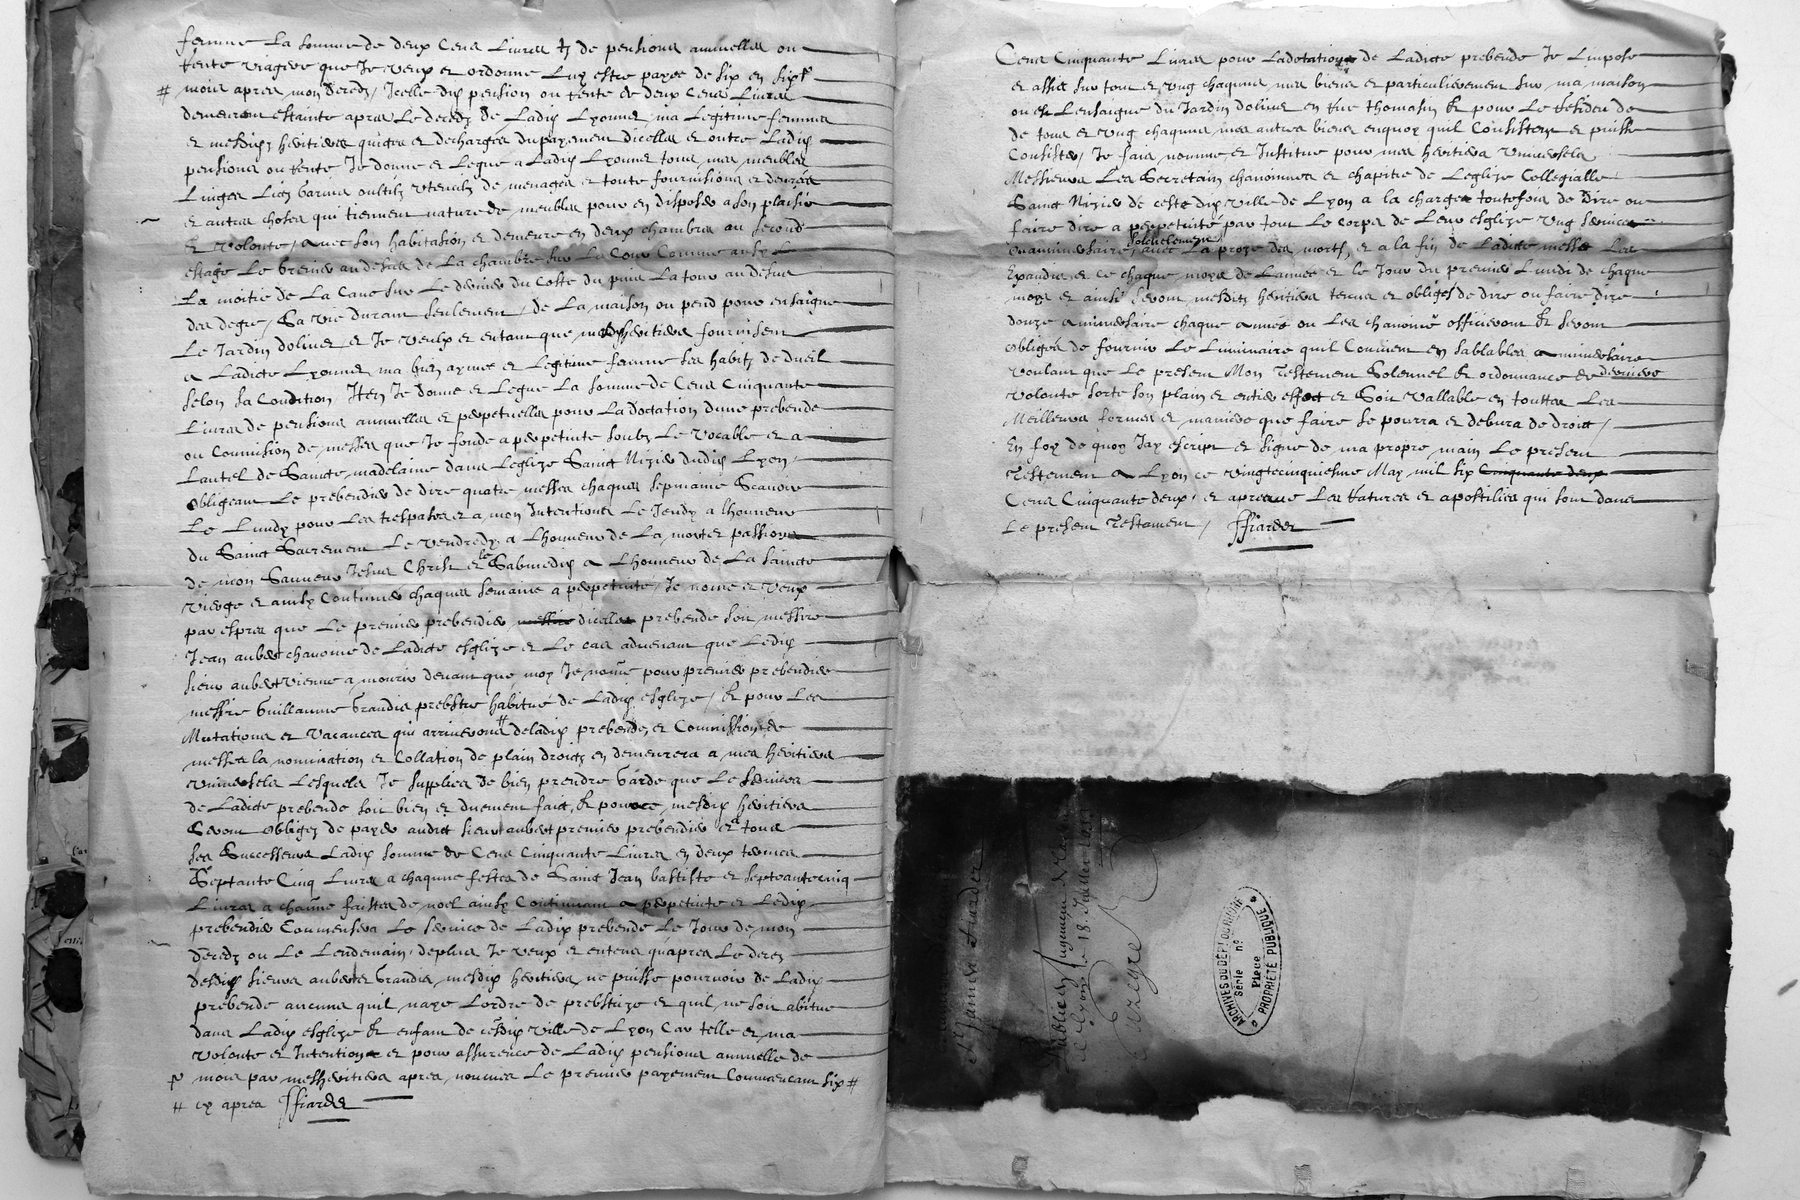 femme La somme de deux Cens Livres tz de pensions annuelles ou
Rente viagere que Je veux et ordonne Luy estre payee de six en six
# mois apres mon deredz, Icelle dis pension ou Rente de deux Cens Livres
demeurant estainte apres Le deredz de Ladis Lyonne ma Legitime femme
et mesdis heritieres quigtes et decharges du payement dicelles et outre Ladis
pensions ou Rente Je donne et Legue a Ladis Lyonne tous mes meubles
Linges Lies Garnis oustilz Utencilz de menages et toute fournisions et denrées
et autres choses qui tiennent nature de meubles pour en disposer a son plaisir
Et Volonte, avec son habitasion et demeure en deux chambres au second
estage Le Grenier au desus de La chambre sur La Cour Comme aussy
La moitie de La Cave sur Le derrier du Coste du puis La tour au desus
des degre, Sa vie durant seulement, de La maison ou pend pour ensaigne
Le Jardin dolivet et Je veulx et entant que mesdis heritiers fournisent
a Ladicte Lyonne ma bien aymee et Legitime femme ses habitz de dueil
selon sa Condition Item Je donne et Legue La somme de Cens Cinquante
Livres de pensions annuelles et perpetuelles pour La doctation dune prebende
ou Commision de messes que Je fonde a perpetuite soubz Le Vocable et a
Lautel de Saincte madelaine dans Leglize Sainct Nizier dudis Lyon,
Obligeant Le prebendier de dire quatre messes chaques sepmaine Scavoir
Le Lundy pour Les trespases et a mon Intentions Le Jeudy a lhonneur
du Sainct Sacrement Le vendredy a Lhonneur de La mort et passion
de mon Sauveur Jesus Christ et le Sabmedis a Lhonneur de La Saincte
vierge et ainsy Continuer chaques semaine a perpetuite, Je nome et Veux
par espres que Le premier prebendier dicelles prebende soit messire
Jean aubert chanoine de Ladicte esglize et Le cas advenant que Ledis
sieur aubert vienne a mourir devant que moy Je nome pour premier prebendier
messire Guillaume Grandis prebstre habitué de Ladis esglize, Et pour Les
Mutations et Vacances qui arriverons # deladis prebende et Commission de
messes la nomination et Collation de plain droit en demeurera a mes heritiers
Universels Lesquels Je supplies de bien prendre Garde que Le services
de Ladicte prebende soit bien et duement faict, Et pource mesdis heritiers
Seront Obliges de payer audict sieur aubert premier prebendier et a tous
ses Successeurs Ladis somme de Cens Cinquante Livres en deux termes
Septante Cinq Livres a chaqune festes de Sainct Jean bastiste et septeante cinq
Livres a chaune faistes de noel ainsy Continuant a perpetuite et Ledis
prebendier Commensera Le service de Ladis prebende Le Jour de mon
deredz ou Le Lendemain, deplus Je veux et entens quapres Le deredz
desdis sieurs aubert et Grandis mesdis heritiers ne puisse pourvoir de Ladis
prebende aucuns quil naye Lordre de prebstrize et quil ne soit abitue
dans Ladis esglize Et enfant de cestedis ville de Lyon Car telle et ma
Volonte et Intention et pour assurence de Ladis pensions annuelle de
mois par mes heritiers apres, nommes Le premier payement Commencant six #
# cy apres ffiarder
Cens Cinquante Livres pour Ladotation de Ladicte prebende Je Limpose
et assis sur tout et ung chaquns mes biens et particulierement sur ma maison
ou est Lensaigne du Jardin dolivet en Rue thomasin Et pour Le Residu de
de tous et ung chaquns mes autres biens enquoy quil Consistent et puisse
Consister, Je fais nomme et Institue pour mes heritiers Universels
Messieurs Les Secretain chanoinnes et chapitre de Leglize Collegialle
Sainct Nizier de ceste dis ville de Lyon a la charge toutefois de Dire ou
faire dire a perpetuité par tout Le corps de Leur esglize ung service
Ou anniversaire, Solennelement avec La proze des morts, et a la fin de Ladicte messes Les
Expandis et ce chaque moys de Lannee et le Jour du premier Lundi de chaque
moys et ainsi seront mesditz heritiers tenus et obliges de dire ou faire dire
douze anniversaire chaque année ou Les chanoines officieront Et seront
obliges de fournir Le Luminaire quil Convient en sablables anniversaire
voulant que Le present Mon Testement Solennel Et ordonnance de derniere
volonte sorte son plain et entier effect et Soit Vallable en touttes Les
Meilleures formes et maniere que faire se pourra et debvra de droict,
En foy de quoy Jay escript et signe de ma propre main Le present
Testement a Lyon ce vingtcinquiesme May mil six Cinquante deux
Cens Cinquante deux, et apreuve Les Ratures et apostilies qui sont dans
Le present Testament, ffiarder
ARCHIVES DU DÉPT DU RHÔNE
Série n°
Pièce
PROPRIÉTÉ PUBLIQUE